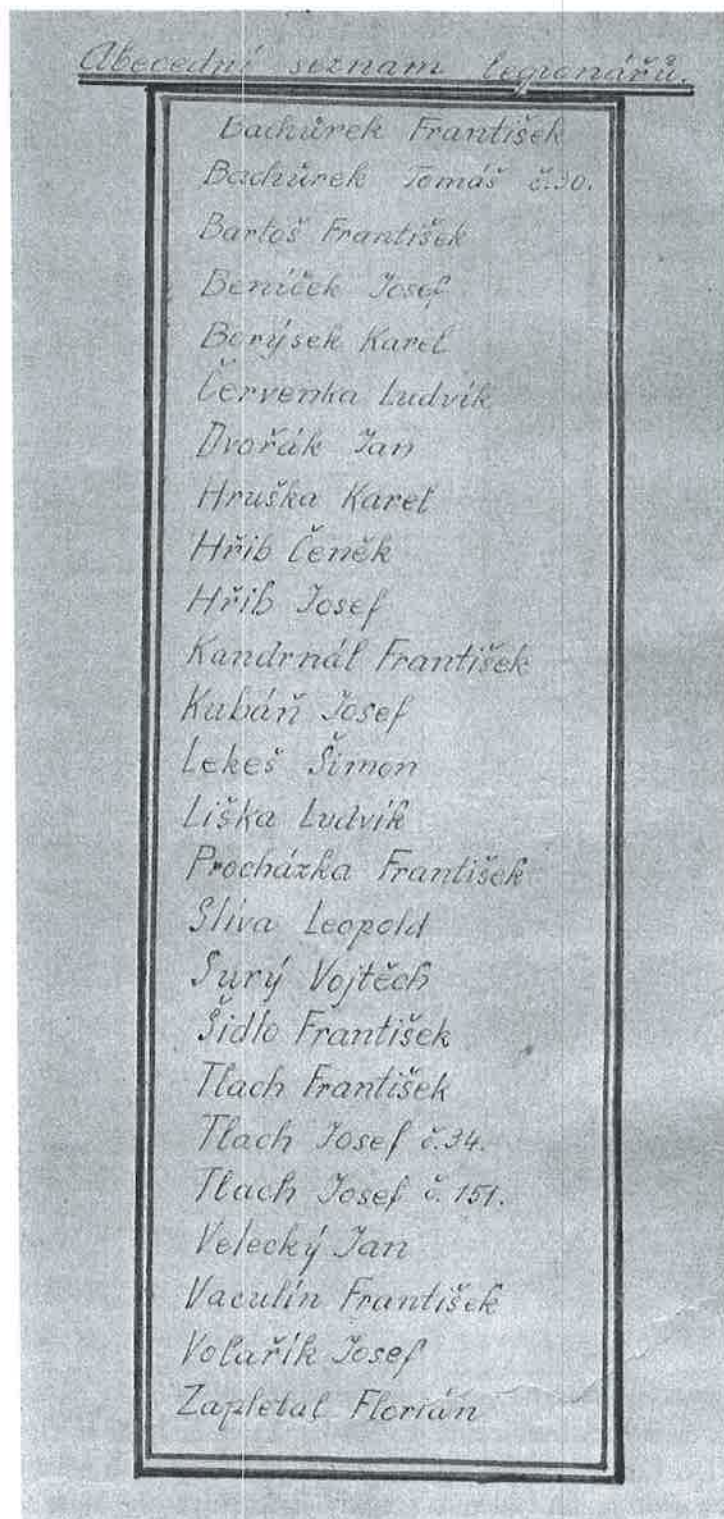 Abecední seznam legionářů.
Bachůrek František
Bachůrek Tomáš č.90.
Bartoš František
Beníček Josef
Borýsek Karel
Červenka Ludvík
Dvořák Jan
Hruška Karel
Hřib Čeněk
Hřib Josef
Kandrnál František
Kubáň Josef
Lekeš Šimon
Liška Ludvík
Procházka František
Slíva Leopold
Surý Vojtěch
Šidlo František
Tlach František
Tlach Josef č.34.
Tlach Josef č.151.
Velecký Jan
Vaculín František
Volařík Josef
Zapletal Florián